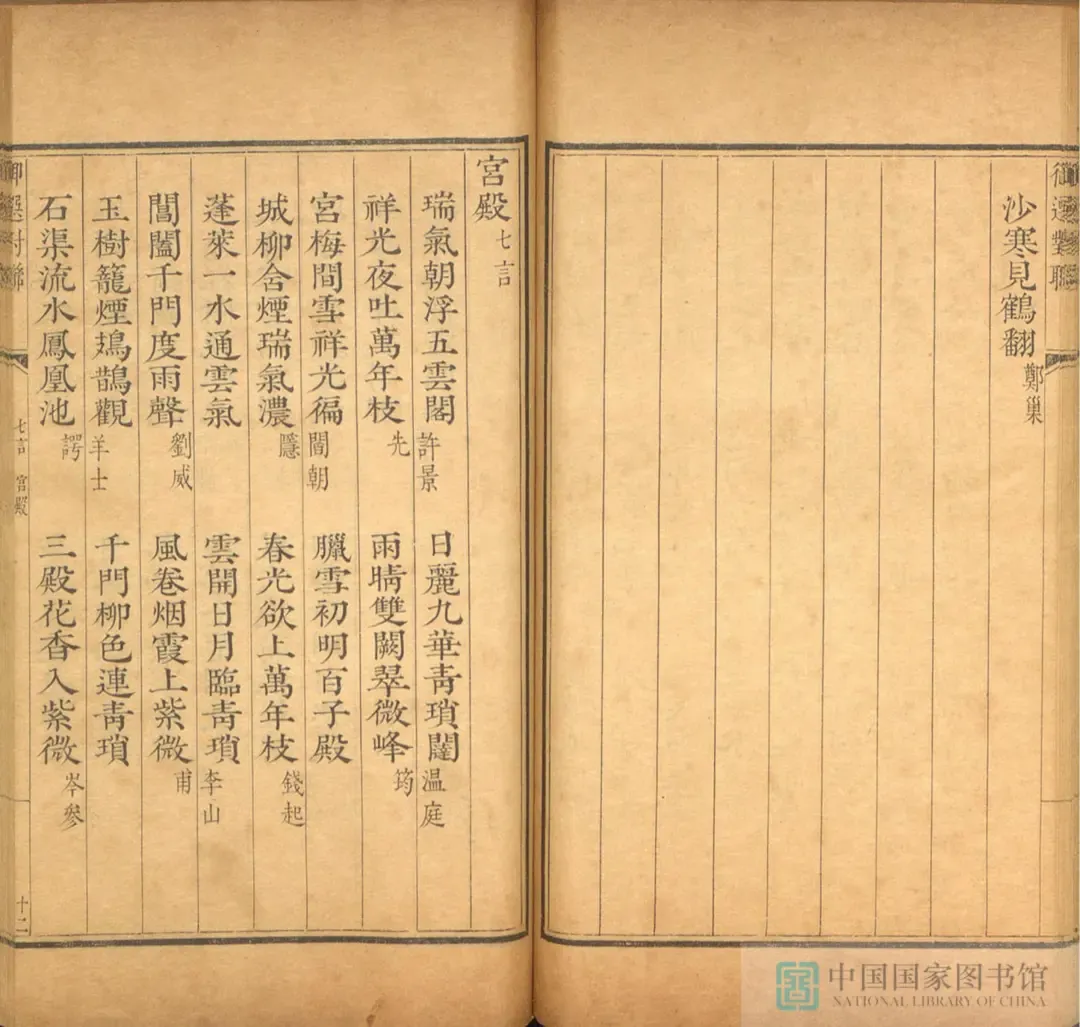 御選對聯
沙寒見鶴翻 鄭巢
宮殿 七言
瑞氣朝浮五雲閣 許景 日麗九華青瑣闥 温庭
祥光夜吐萬年枝 先 雨晴雙闕翠微峰 筠
宮梅間雪祥光徧 閻朝 臘雪初明百子殿
城柳含煙瑞氣濃 隱 春光欲上萬年枝 錢起
蓬萊一水通雲氣 雲開日月臨青瑣 李山
閶闔千門度雨聲 劉威 風卷烟霞上紫微 甫
玉樹籠煙鳷鵲觀 羊士 千門柳色連青瑣
石渠流水鳳凰池 諤 三殿花香入紫微 岑參
御選對聯 七言 宮殿 十二
中国国家图书馆
NATIONAL LIBRARY OF CHINA